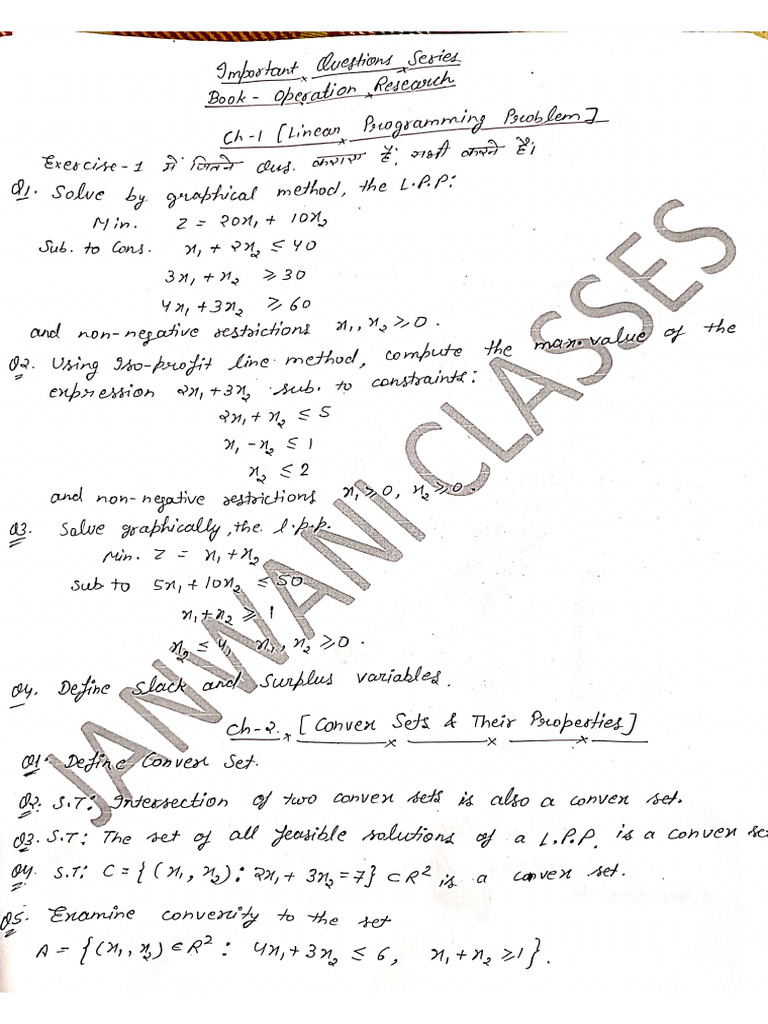 Important Questions Series
Book - Operation Research
Ch-1 [Linear Programming Problem]
Exercise-1 में जितने Qus. कराए हैं, सभी करने हैं।
Q1. Solve by graphical method, the L.P.P:
Min. Z = 20x₁ + 10x₂
Sub. to Cons. x₁ + 2x₂ ≤ 40
3x₁ + x₂ ≥ 30
4x₁ + 3x₂ ≥ 60
and non-negative restrictions x₁, x₂ ≥ 0.
Q2. Using Iso-profit line method, compute the max. value of the
expression 2x₁ + 3x₂ sub. to constraints:
2x₁ + x₂ ≤ 5
x₁ - x₂ ≤ 1
x₂ ≤ 2
and non-negative restrictions x₁ ≥ 0, x₂ ≥ 0.
Q3. Solve graphically, the l.p.p.
Min. Z = x₁ + x₂
Sub to 5x₁ + 10x₂ ≤ 50
x₁ + x₂ ≥ 1
x₂ ≤ 4, x₁, x₂ ≥ 0.
Q4. Define Slack and Surplus variables.
Ch-2. [Convex Sets & Their Properties]
Q1. Define Convex Set.
Q2. S.T: Intersection of two convex sets is also a convex set.
Q3. S.T: The set of all feasible solutions of a L.P.P. is a convex se
Q4. S.T: C = {(x₁, x₂): 2x₁ + 3x₂ = 7} ⊂ R² is a convex set.
Q5. Examine convexity to the set
A = {(x₁, x₂) ∈ R² : 4x₁ + 3x₂ ≤ 6, x₁ + x₂ ≥ 1}.
JANWANI CLASSES